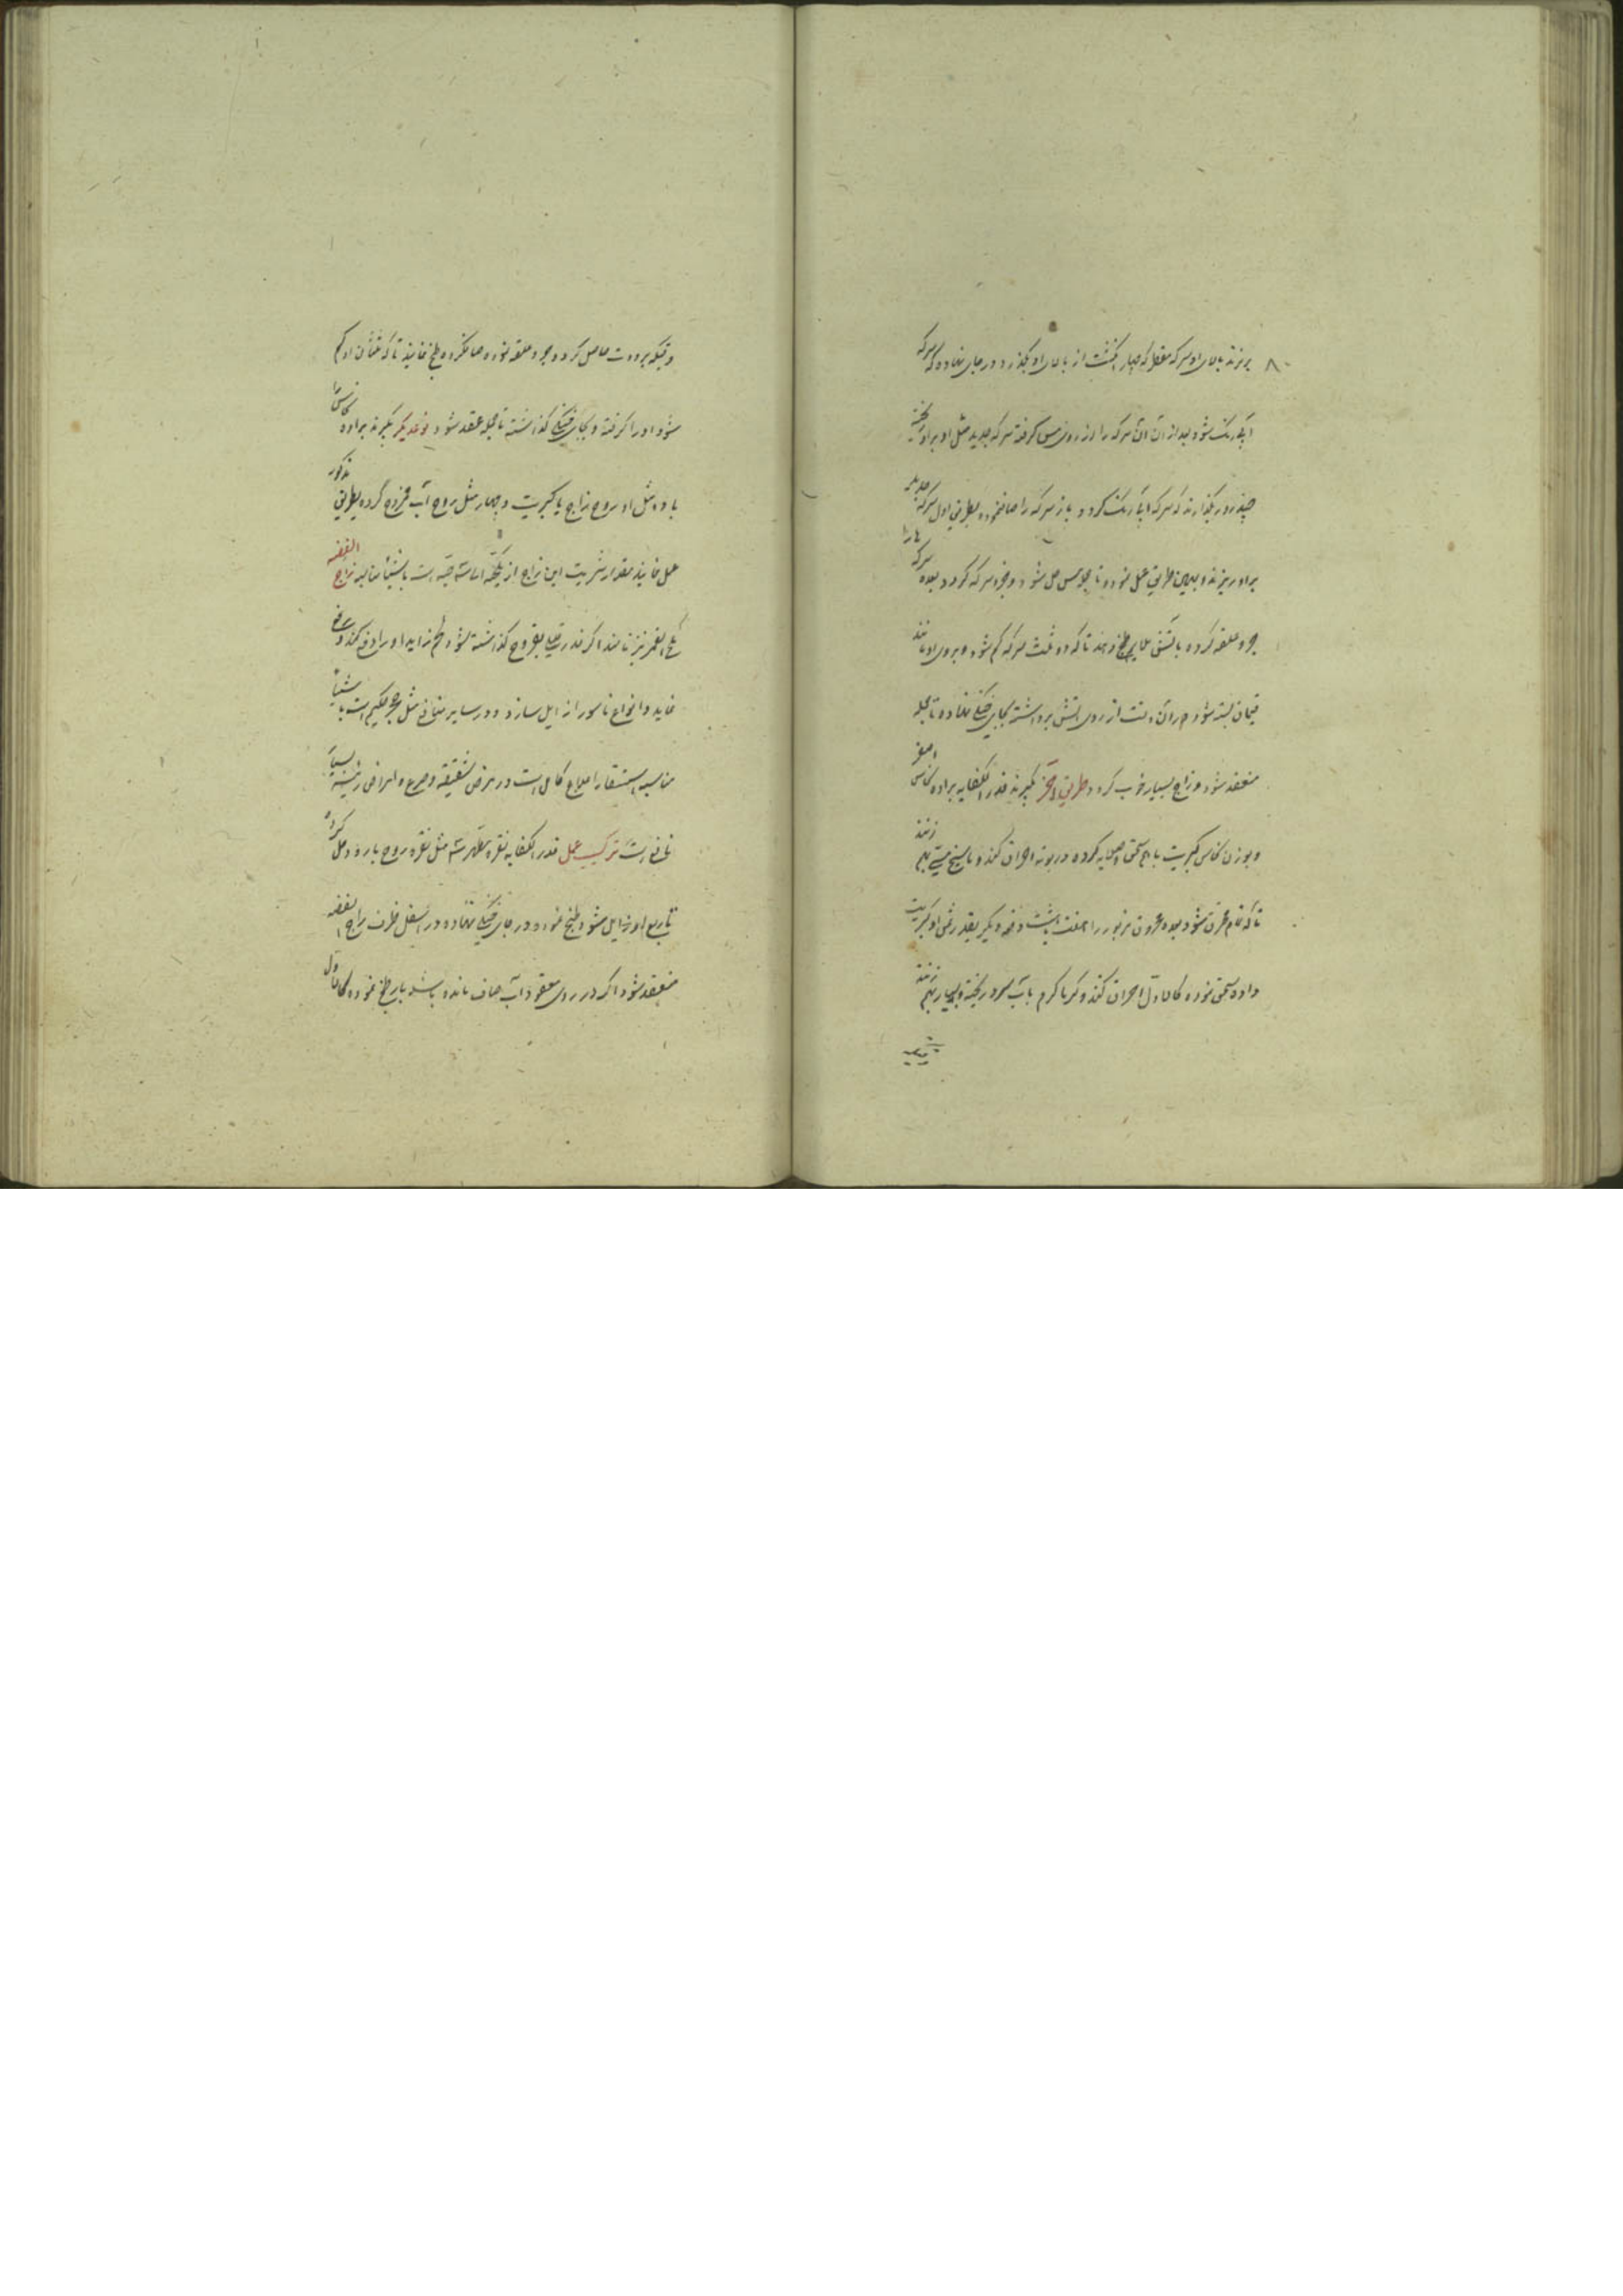 ۸۰
بریزند بالای او سرکه مقطر که چهار انگشت از بالای او بگذرد و در جای نهاده که سرکه
آبی رنگ شود بعد از آن آن سرکه را از روی مس گرفته سرکه جدید مثل او بر او ریخته
چند روز بگذارند که سرکه آبی رنگ گردد و باز سرکه را صاف نموده بطریق اول سرکه جدید
بر او ریزند و بهمین طریق عمل نموده تا جوهر مس حل شود و جزو سرکه گردد بعده سرکه ها را
جزو علقه کرده بآتش ملایم طبخ دهند تا که دو ثلث سرکه کم شود و بروی او مانند
قیماق بسته شود در آن وقت از روی آتش برداشته بجای خنکی نهاده تا جمله
منعقد شود و زاج بسیار خوب گردد طریق آخر بگیرند قدر الکفایه براده نحاس اصفر
و بوزن نحاس کبریت با هم سحق و صلایه کرده در بوته احراق کنند و با سیخ میی بهم زنند
تا که تمام محرق شود بعده محروق مزبور را هفت هشت دفعه دیگر بقدر ثمن او کبریت
داده سحق نموده کالاول احراق کنند و گرماگرم بآب سرد ریخته و بسیار بهم زنند
وقتیکه برودت حاصل کرد و جزو علقه نموده صاف کرده طبخ نمایند تا که ثلثان او کم
شود او را گرفته و بجای خنکی گذاشته تا جمله عقد شود نوعدیگر بگیرند براده نحاس را
با دو مثل او روح زاج یا کبریت و چهار مثل روح آب ممزوج کرده بطریق مذکور
عمل نمایند مقدار شربت این زاج از یکحبه الی سه حبه است با شیئاً مناسبه زاج الفضه
ملح القمر نیز نامند اگر قدر قلیلی بقروح گذاشته شود لحم زاید او را دفع کند و
نماید و انواع ناسور زایل سازد و در سایر منافع مثل حجر حکیم است با شیئاً
مناسبه استسقا را صلاح کامل است در مرض شقیقه و صرع و امراض رئیسه بسیار
نافع است ترکیب عمل قدر الکفایه نقره مطهر سه مثل نقره روح بارود حل کرده
تا ربع او زایل شود طبخ نموده در جای خنکی نهاده در اسفل ظرف زاج الفضه
منعقد شود اگر در روی معقود آب صاف مانده باشد باز طبخ نموده کالاول